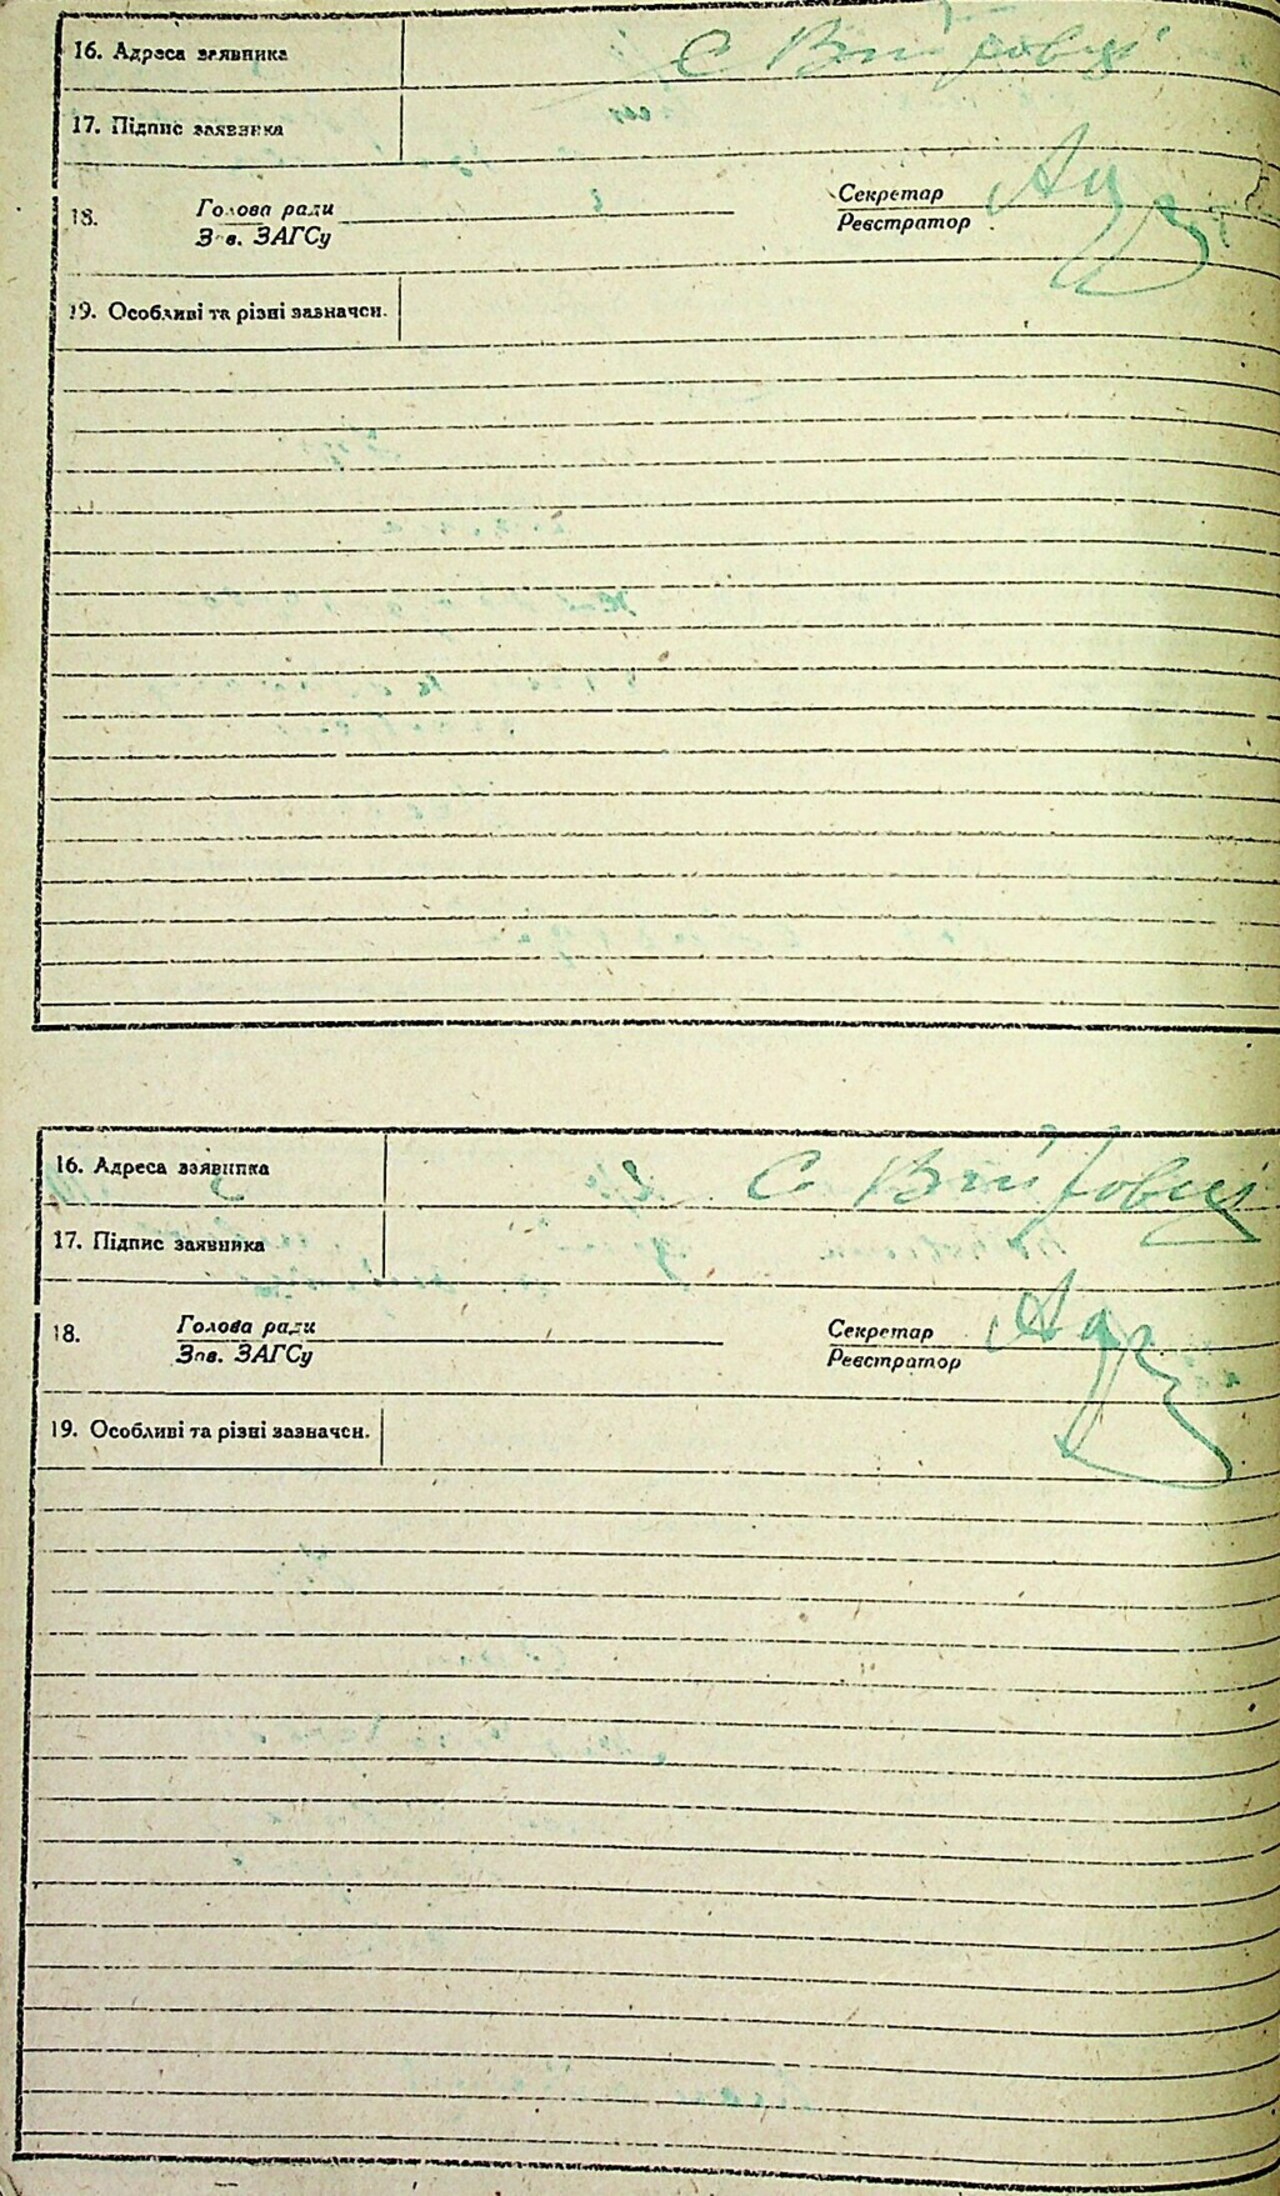 16. Адреса заявника С Війтовці
17. Підпис заявника
18. Голова ради Секретар
Зав. ЗАГСу Реєстратор
19. Особливі та різні зазначен.
16. Адреса заявника С Війтовці
17. Підпис заявника
18. Голова ради Секретар
Зав. ЗАГСу Реєстратор
19. Особливі та різні зазначен.